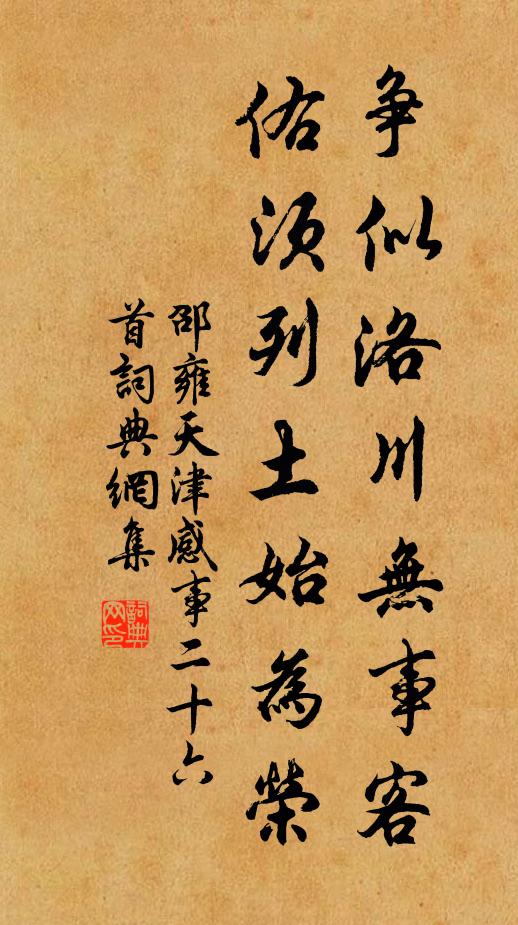 争似洛川無事客
佑須列土始為榮
邵雍天津感事二十六
首詞典網集
詞典
网印